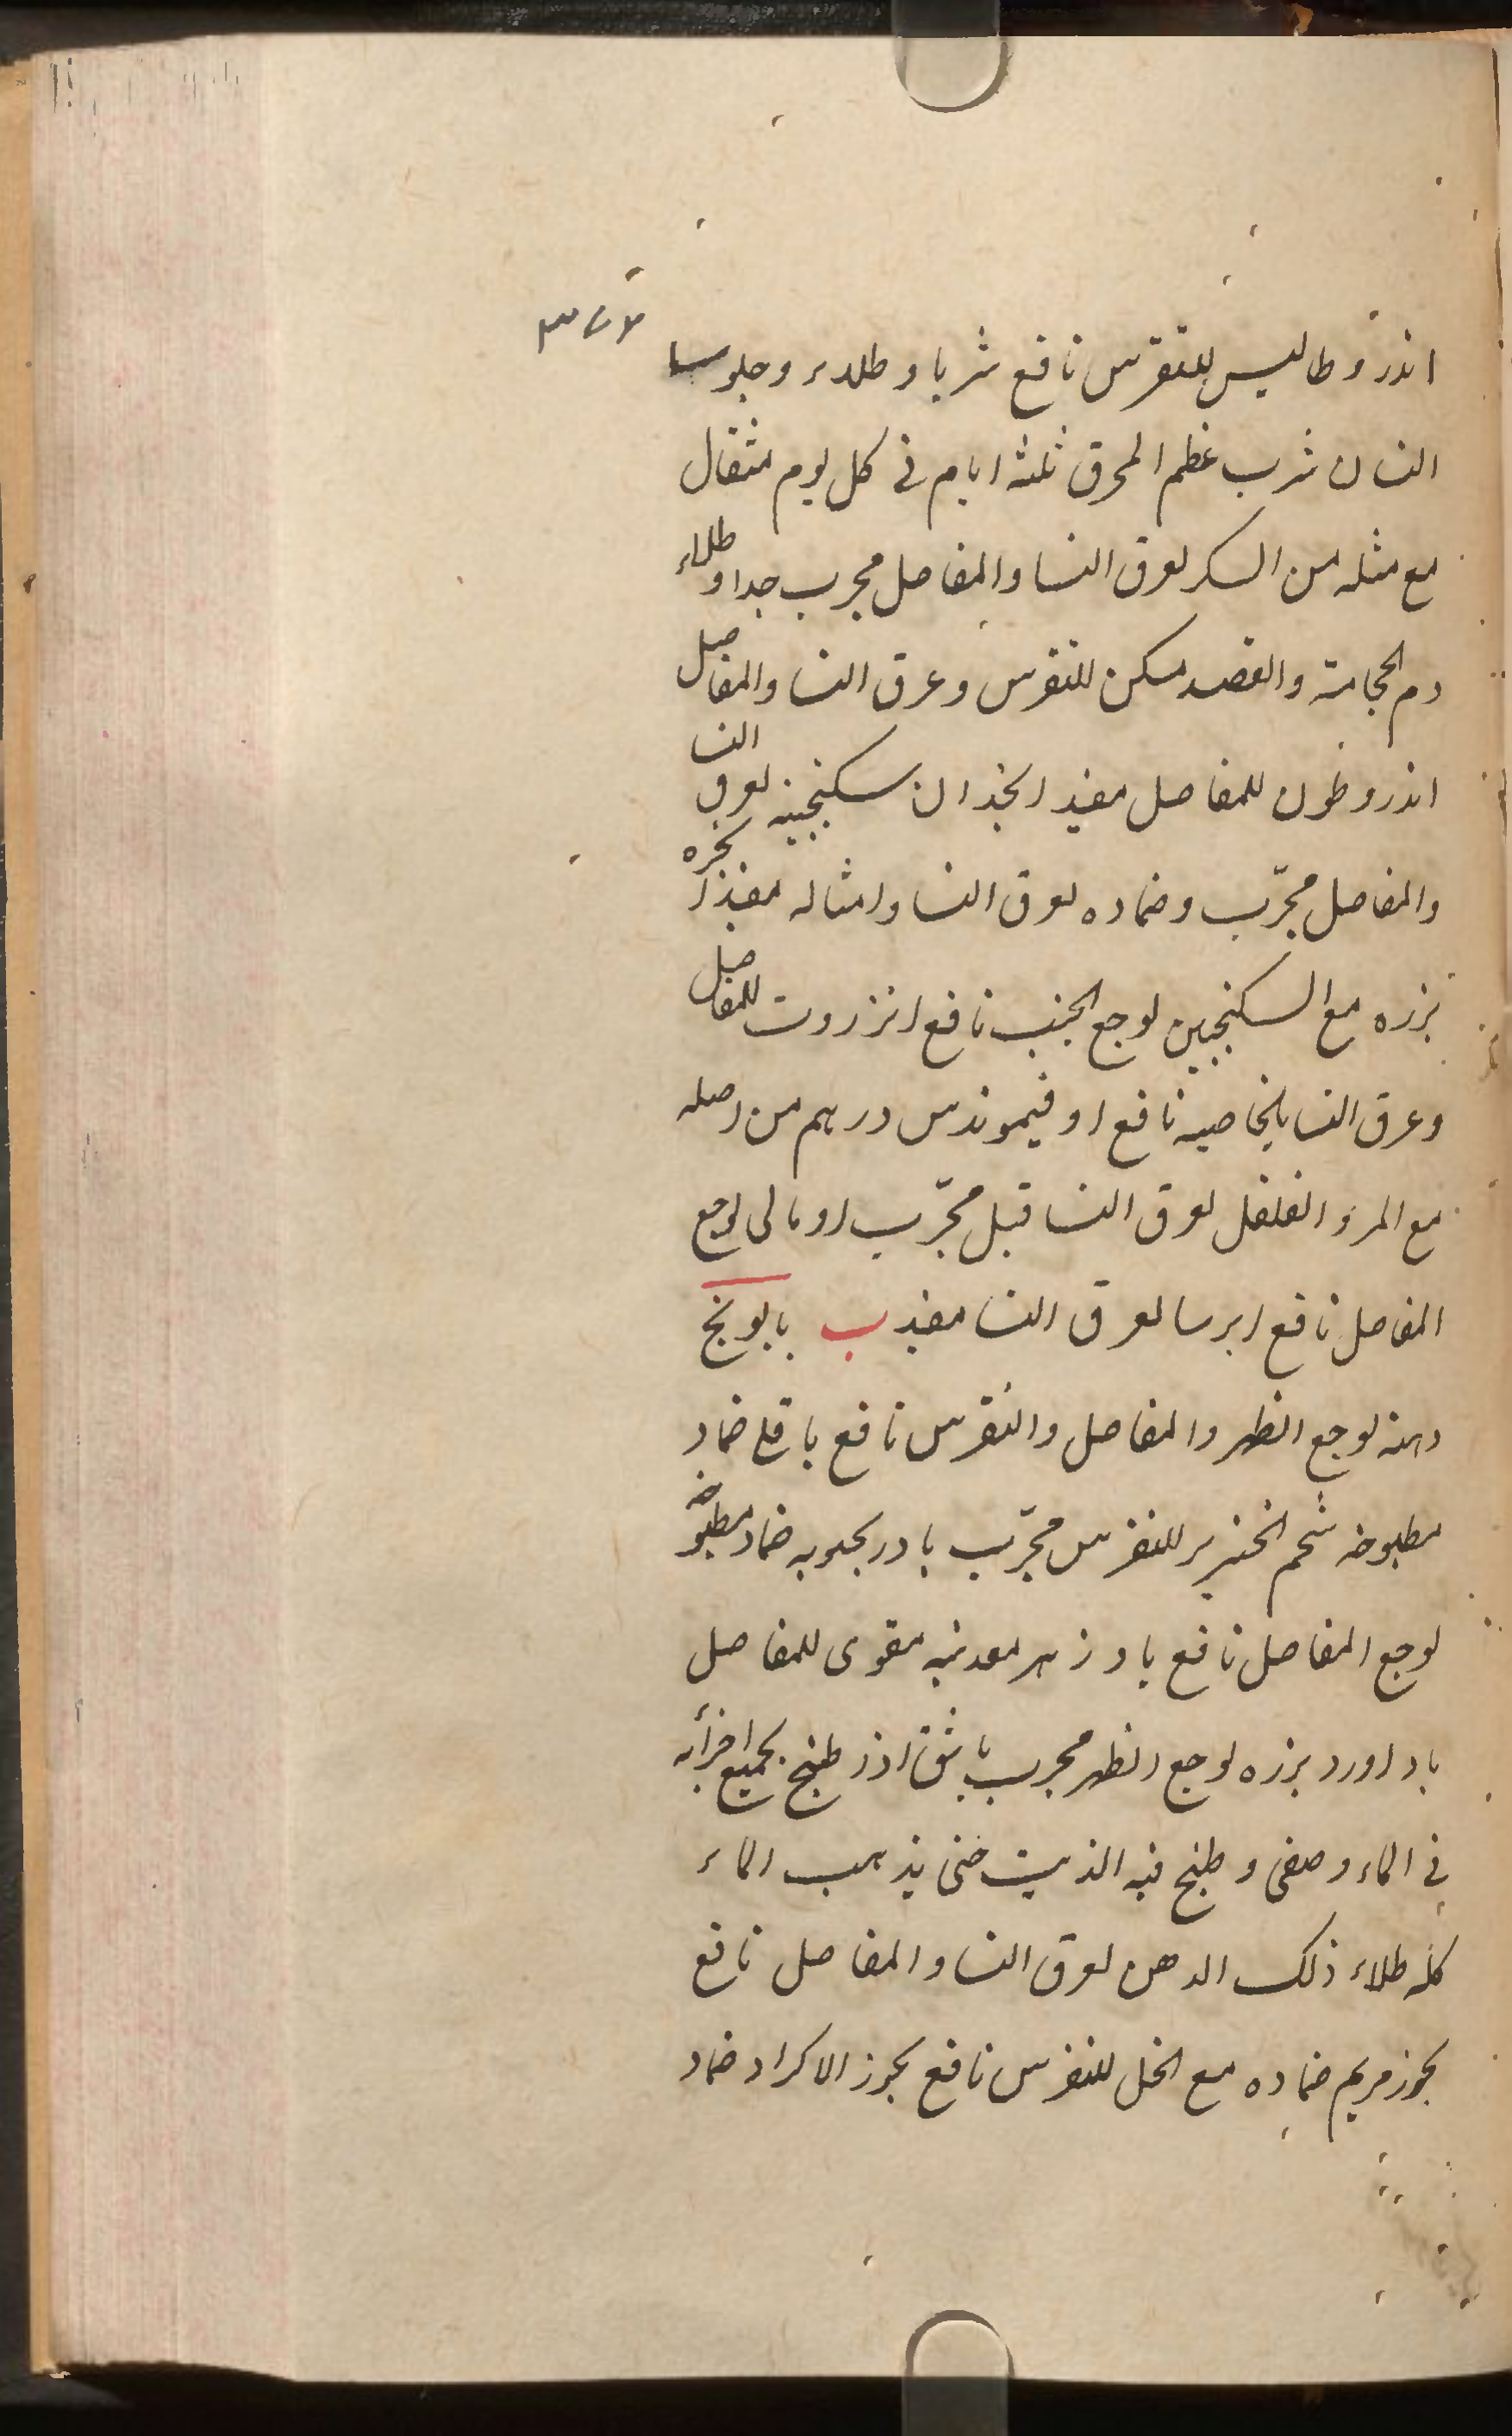 اندروطاليس للنقرس نافع شربا وطلاء وجلوسا
انسان شرب عظم المحرق ثلثه ايام فى كل يوم مثقال
مع مثله من السكر لعرق النسا والمفاصل مجرب جدا وطلاء
دم الحجامة والفصد مسكن للنقرس وعرق النسا والمفاصل
اندروطون للمفاصل مفيد انجدان سكنجبينه لعرق النسا
والمفاصل مجرّب وضماده لعرق النسا وامثاله مفيد انجره
بزره مع السكنجبين لوجع الجنب نافع انزروت للمفاصل
وعرق النسا بالخاصيه نافع اوفيموندس درهم من اصله
مع المر والفلفل لعرق النسا قيل مجرّب اومالى لوجع
المفاصل نافع ايرسا لعرق النسا مفيد ب بابونج
دهنه لوجع الظهر والمفاصل والنقرس نافع باقلى ضماد
مطبوخه شحم الخنزير للنقرس مجرّب بادرنجبويه ضماد مطبوخه
لوجع المفاصل نافع بادزهر معدنيه مقوى للمفاصل
باداورد بزره لوجع الظهر مجرب باشق اذا طبخ بجميع اجزائه
فى الماء وصفى وطبخ فيه الزيت حتى يذهب الماء
كله طلاء ذلك الدهن لعرق النسا والمفاصل نافع
بخور مريم ضماده مع الخل للنقرس نافع بخور الاكراد ضماد